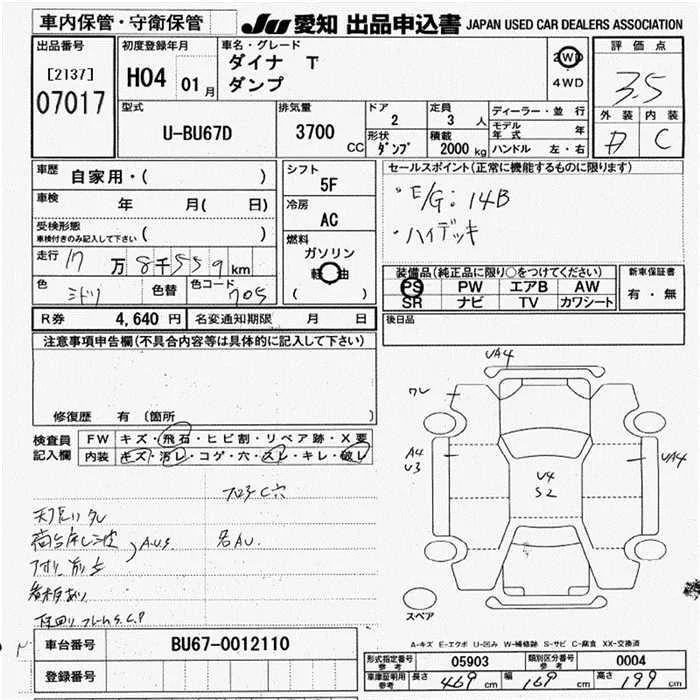 車内保管・守衛保管
JU 愛知 出品申込書 JAPAN USED CAR DEALERS ASSOCIATION
出品番号
[2137]
07017
初度登録年月
H04 01月
車名・グレード
ダイナ T
ダンプ
2WD
4WD
評価点
3.5
外装 内装
C
型式
U-BU67D
排気量
3700 CC
ドア
2
定員
3 人
形状
ダンプ
積載
2000 kg
ディーラー・並行
モデル年式 年
ハンドル 左・右
車歴
自家用・( )
車検
年 月( 日)
受検形態
車検付きのみ記入して下さい ( )
走行 17万8千559km
色 ミドリ 色替 色コード 705
シフト
5F
冷房
AC
燃料
ガソリン
軽油
( )
セールスポイント(正常に機能するものに限ります)
・E/G:14B
・ハイデッキ
装備品(純正品に限り○をつけてください)
PS PW エアB AW
SR ナビ TV カワシート
新車保証書
有・無
R券 4,640 円 名変通知期限 月 日
後日品
注意事項申告欄(不具合内容等は具体的に記入して下さい)
修復歴 有 〔箇所 〕
検査員記入欄
FW キズ・飛石・ヒビ割・リペア跡・X要
内装 キズ・汚レ・コゲ・穴・スレ・キレ・破レ
フロアC穴
天井ハクレ
A.U.S.
名AU.
看板あり
下回りフレームS.C.P
UA4
ワレ
A4
U3
U4
S2
UA4
スペア
A-キズ E-エクボ U-凹み W-補修跡 S-サビ C-腐食 XX-交換済
車台番号 BU67-0012110
登録番号
形式指定番号 参考 05903 類別区分番号 参考 0004
車庫証明用 参考 長さ 469 cm 幅 169 cm 高さ 199 cm